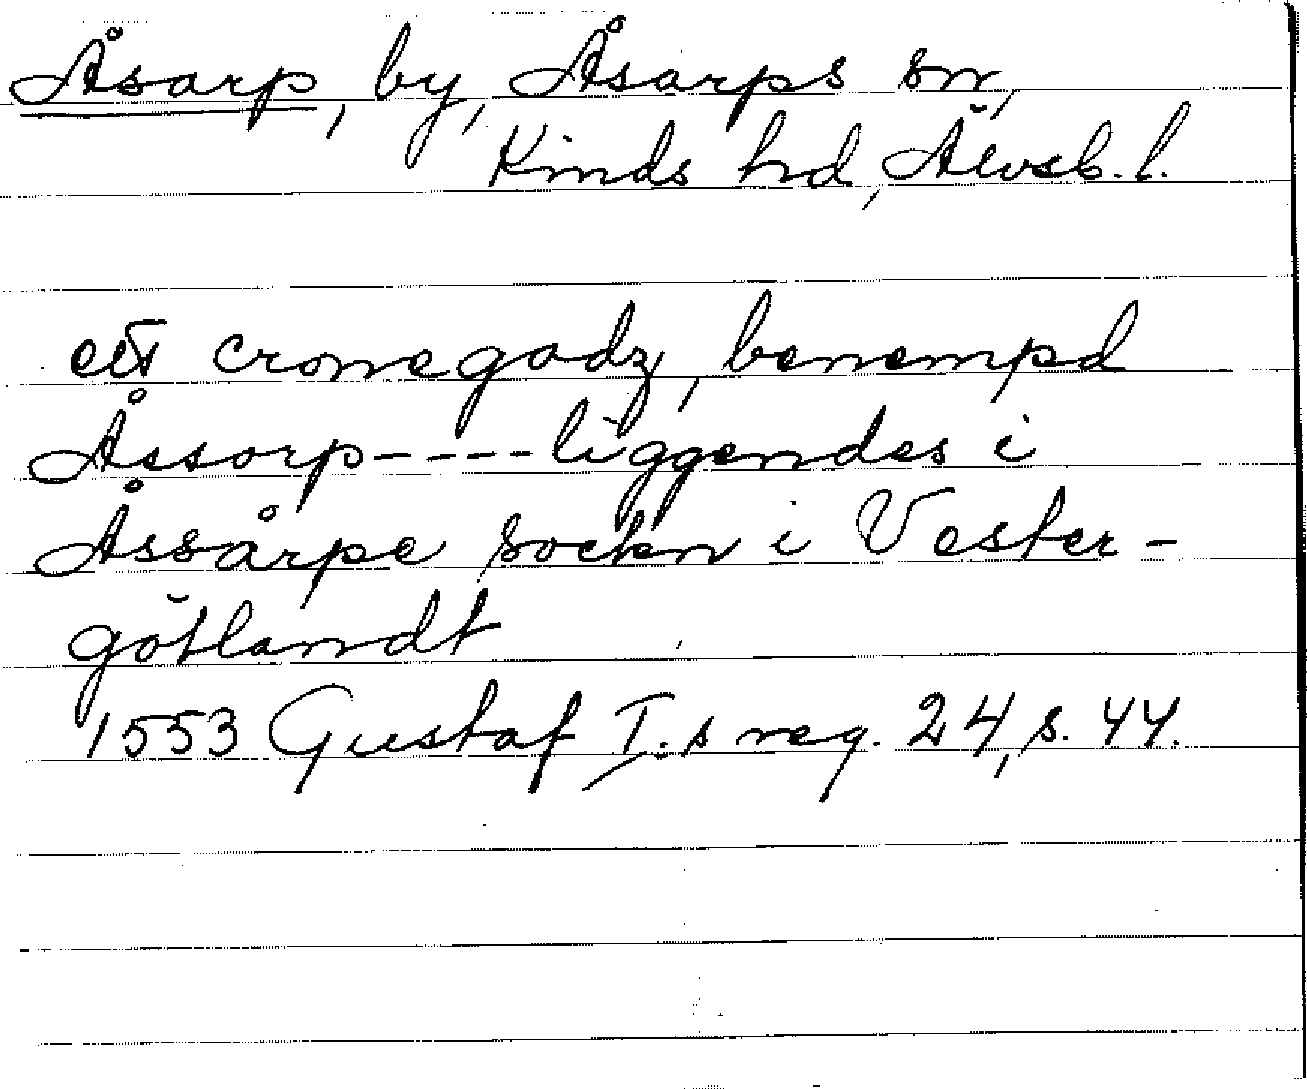 Åsarp, by, Åsarps sn,
Kinds hd, Älvsb. l.
ett cronegodz, benempd
Åssorp----liggendes i
Åssårpe sockn i Vester-
götlandt
1553 Gustaf I.s reg. 24, s. 44.